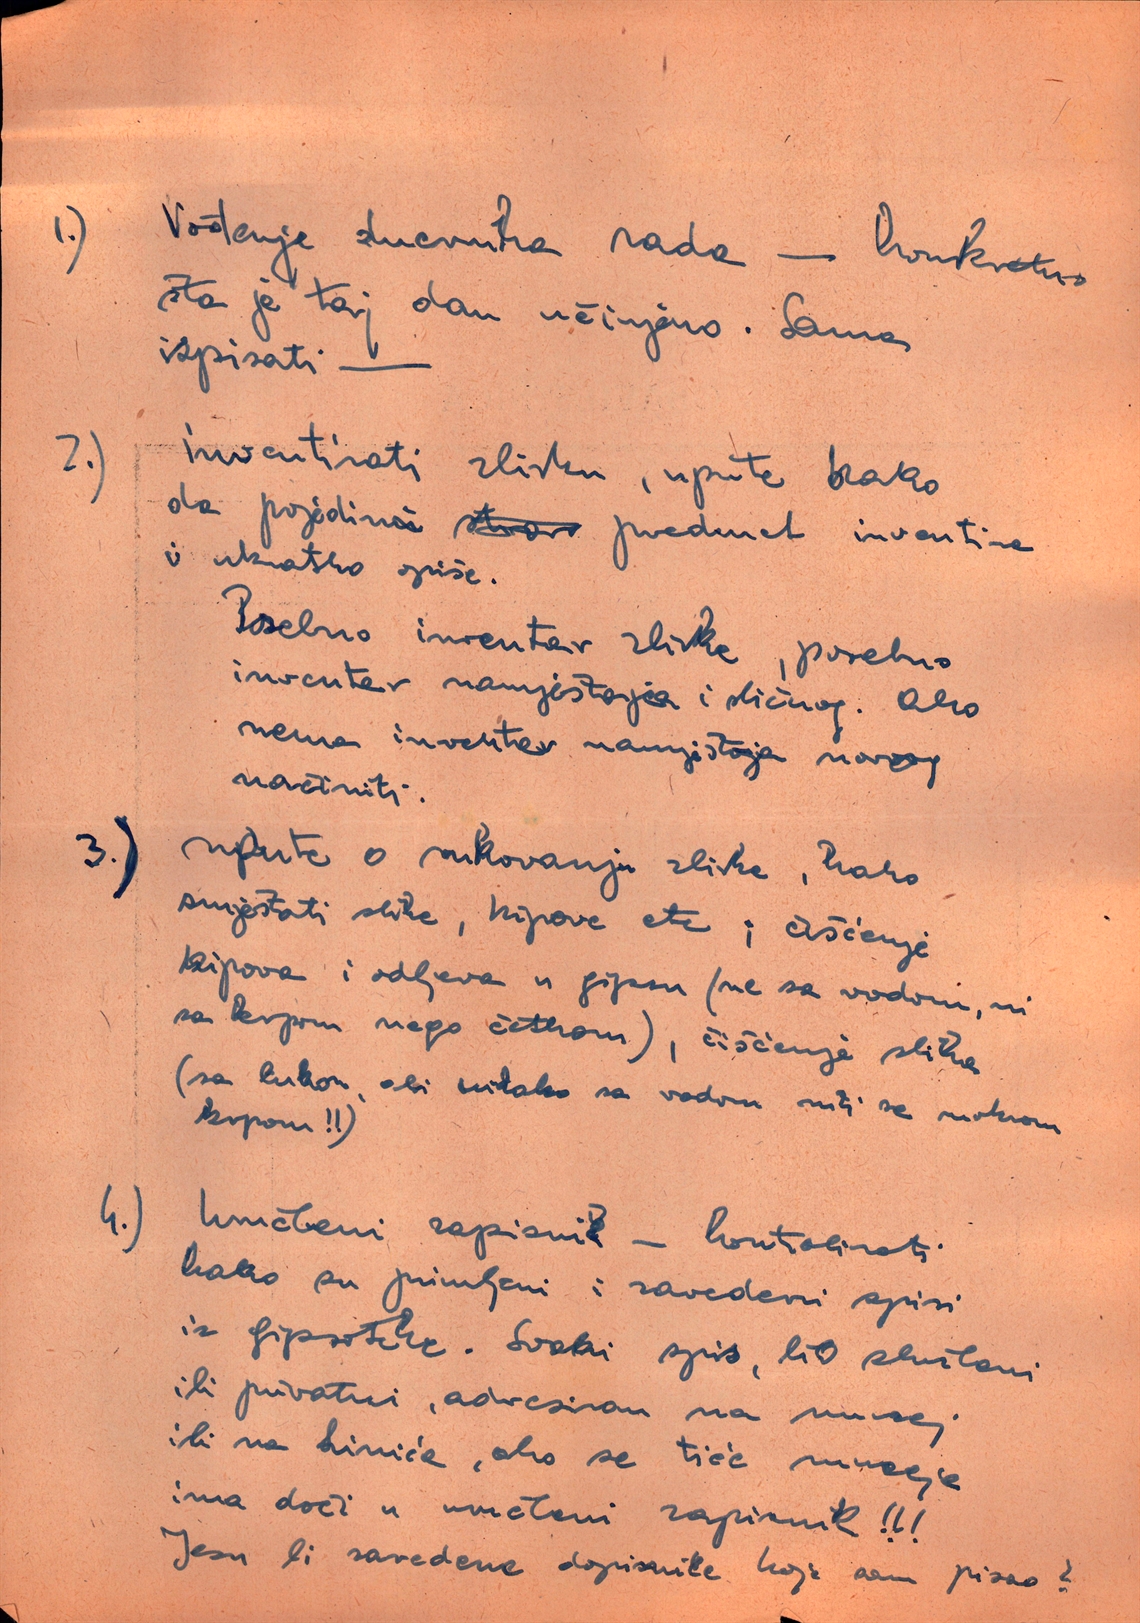 1.) Vođenje dnevnika rada — konkretno
šta je taj dan učinjeno. Samo
ispisati —
2.) inventirati zbirku, upute kako
da pojedini stvar predmet inventira
i ukratko opiše.
Posebno inventar zbirke, posebno
inventar namještaja i sličnog. Ako
nema inventar namještaja novog
načiniti.
3.) upute o rukovanju zbirke, kako
smještati slike, kipove etc; čišćenje
kipova i odljeva u gipsu (ne sa vodom, ni
sa krpom nego četkom), čišćenje slika
(sa lukom, ali nikako sa vodom niti sa mokrom
krpom!!)
4.) Urudžbeni zapisnik — kontrolirati
kako su primljeni i zavedeni spisi
iz gipsoteke. Svaki spis, bio službeni
ili privatni, adresiran na muzej
ili na, ako se tiče muzeja
ima doći u urudžbeni zapisnik!!!
Jesu li zavedene dopisnice koje sam pisao?